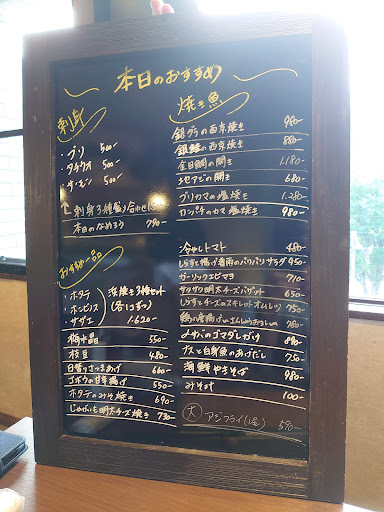 本日のおすすめ
刺身
・ブリ 500-
・タチウオ 500-
・サーモン 500-
刺身3種盛り合わせ
本日のなめろう 790-
おすすめ一品
・ホタテ
・ホンビノス
・サザエ
浜焼き3種セット
(各1コずつ)
1.620-
梅水晶 550-
枝豆 480-
日替りさつまあげ 660-
ゴボウの甘辛揚げ 550-
ホタテのみそ焼き 690-
じゃがいも明太チーズ焼き 730-
焼き魚
銀ダラの西京焼き 980-
銀鮭の西京焼き 880-
金目鯛の開き 1.180-
地アジの開き 680-
ブリカマの塩焼き 1.280-
カンパチのカマ塩焼き 980-
冷やしトマト 480-
しらすと揚げ春雨のパリパリサラダ 950-
ガーリックエビマヨ 710
サクサク明太チーズバゲット 650-
しらすとチーズのスキレットオムレツ 750-
鶏の唐揚げ 780-
〆サバのゴマダレがけ 890-
ナスと白身魚のあげだし 750-
海鮮やきそば 980-
みそ汁 100-
大 アジフライ(1尾) 590-